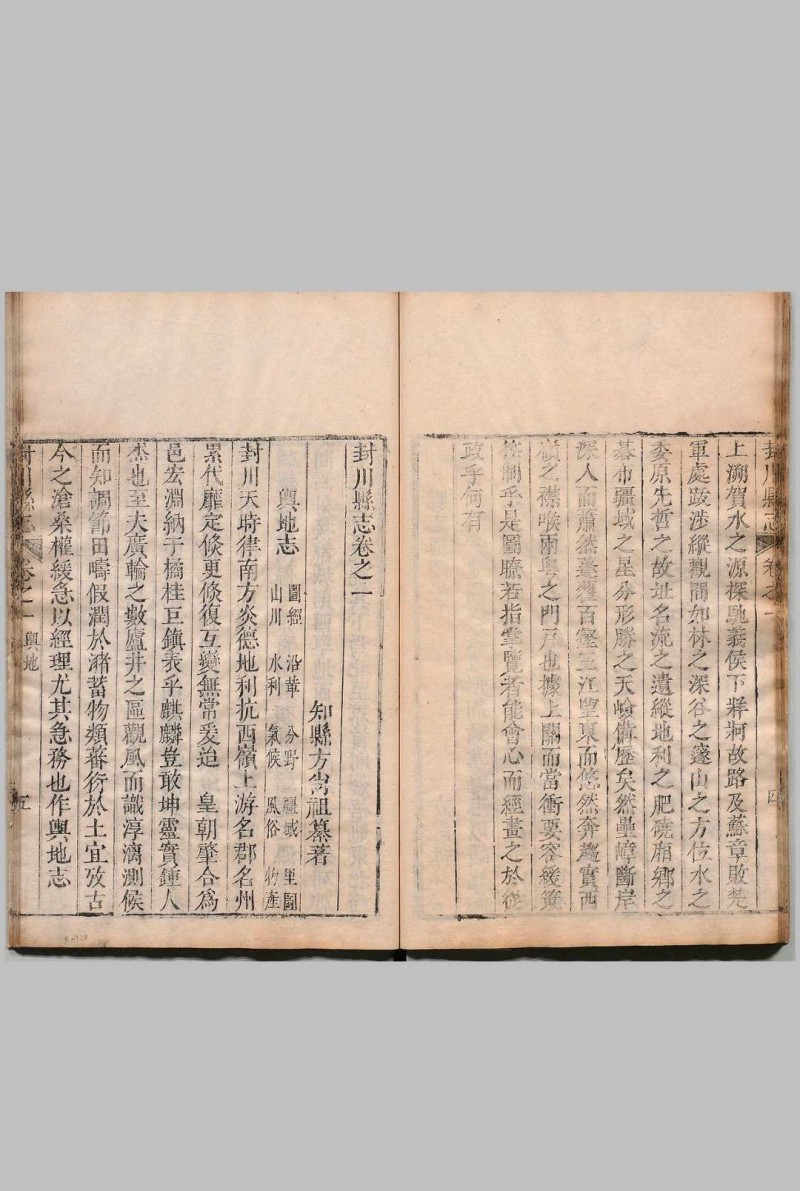 封川縣志 卷之一 四
上溯賀水之源探馳義侯下牂牁故路及蘇章敗楚
軍處跋涉縱觀間如林之深谷之邃山之方位水之
委原先哲之故址名流之遺縱地利之肥磽廂鄉之
碁布疆域之星分形勝之天嶮備歷矣然疊嶂斷岸
深入而蕭然蓬藋百壑三江望東而悠然奔趨實西
嶺之襟喉兩粵之門戶也據上關而當衝要容緩籌
控制乎是圖瞭若指掌覽者能會心而經畫之於從
政乎何有
封川縣志卷之一
知縣方尙祖纂著
輿地志 圖經 沿革 分野 疆域 里圖
山川 水利 氣候 風俗 物產
封川天時律南方炎德地利抗西嶺上游名郡名州
累代靡定倏更倏復互變無常爰迨 皇朝肇合爲
邑宏淵納于橘桂巨鎮表乎麒麟豈敢坤靈實鍾人
杰也至夫廣輪之數廬井之區觀風而識淳漓測候
而知調節田疇假潤於瀦蓄物類蕃衍於土宜攷古
今之滄桑權緩急以經理尤其急務也作輿地志
封川縣志 卷之一 輿地 五